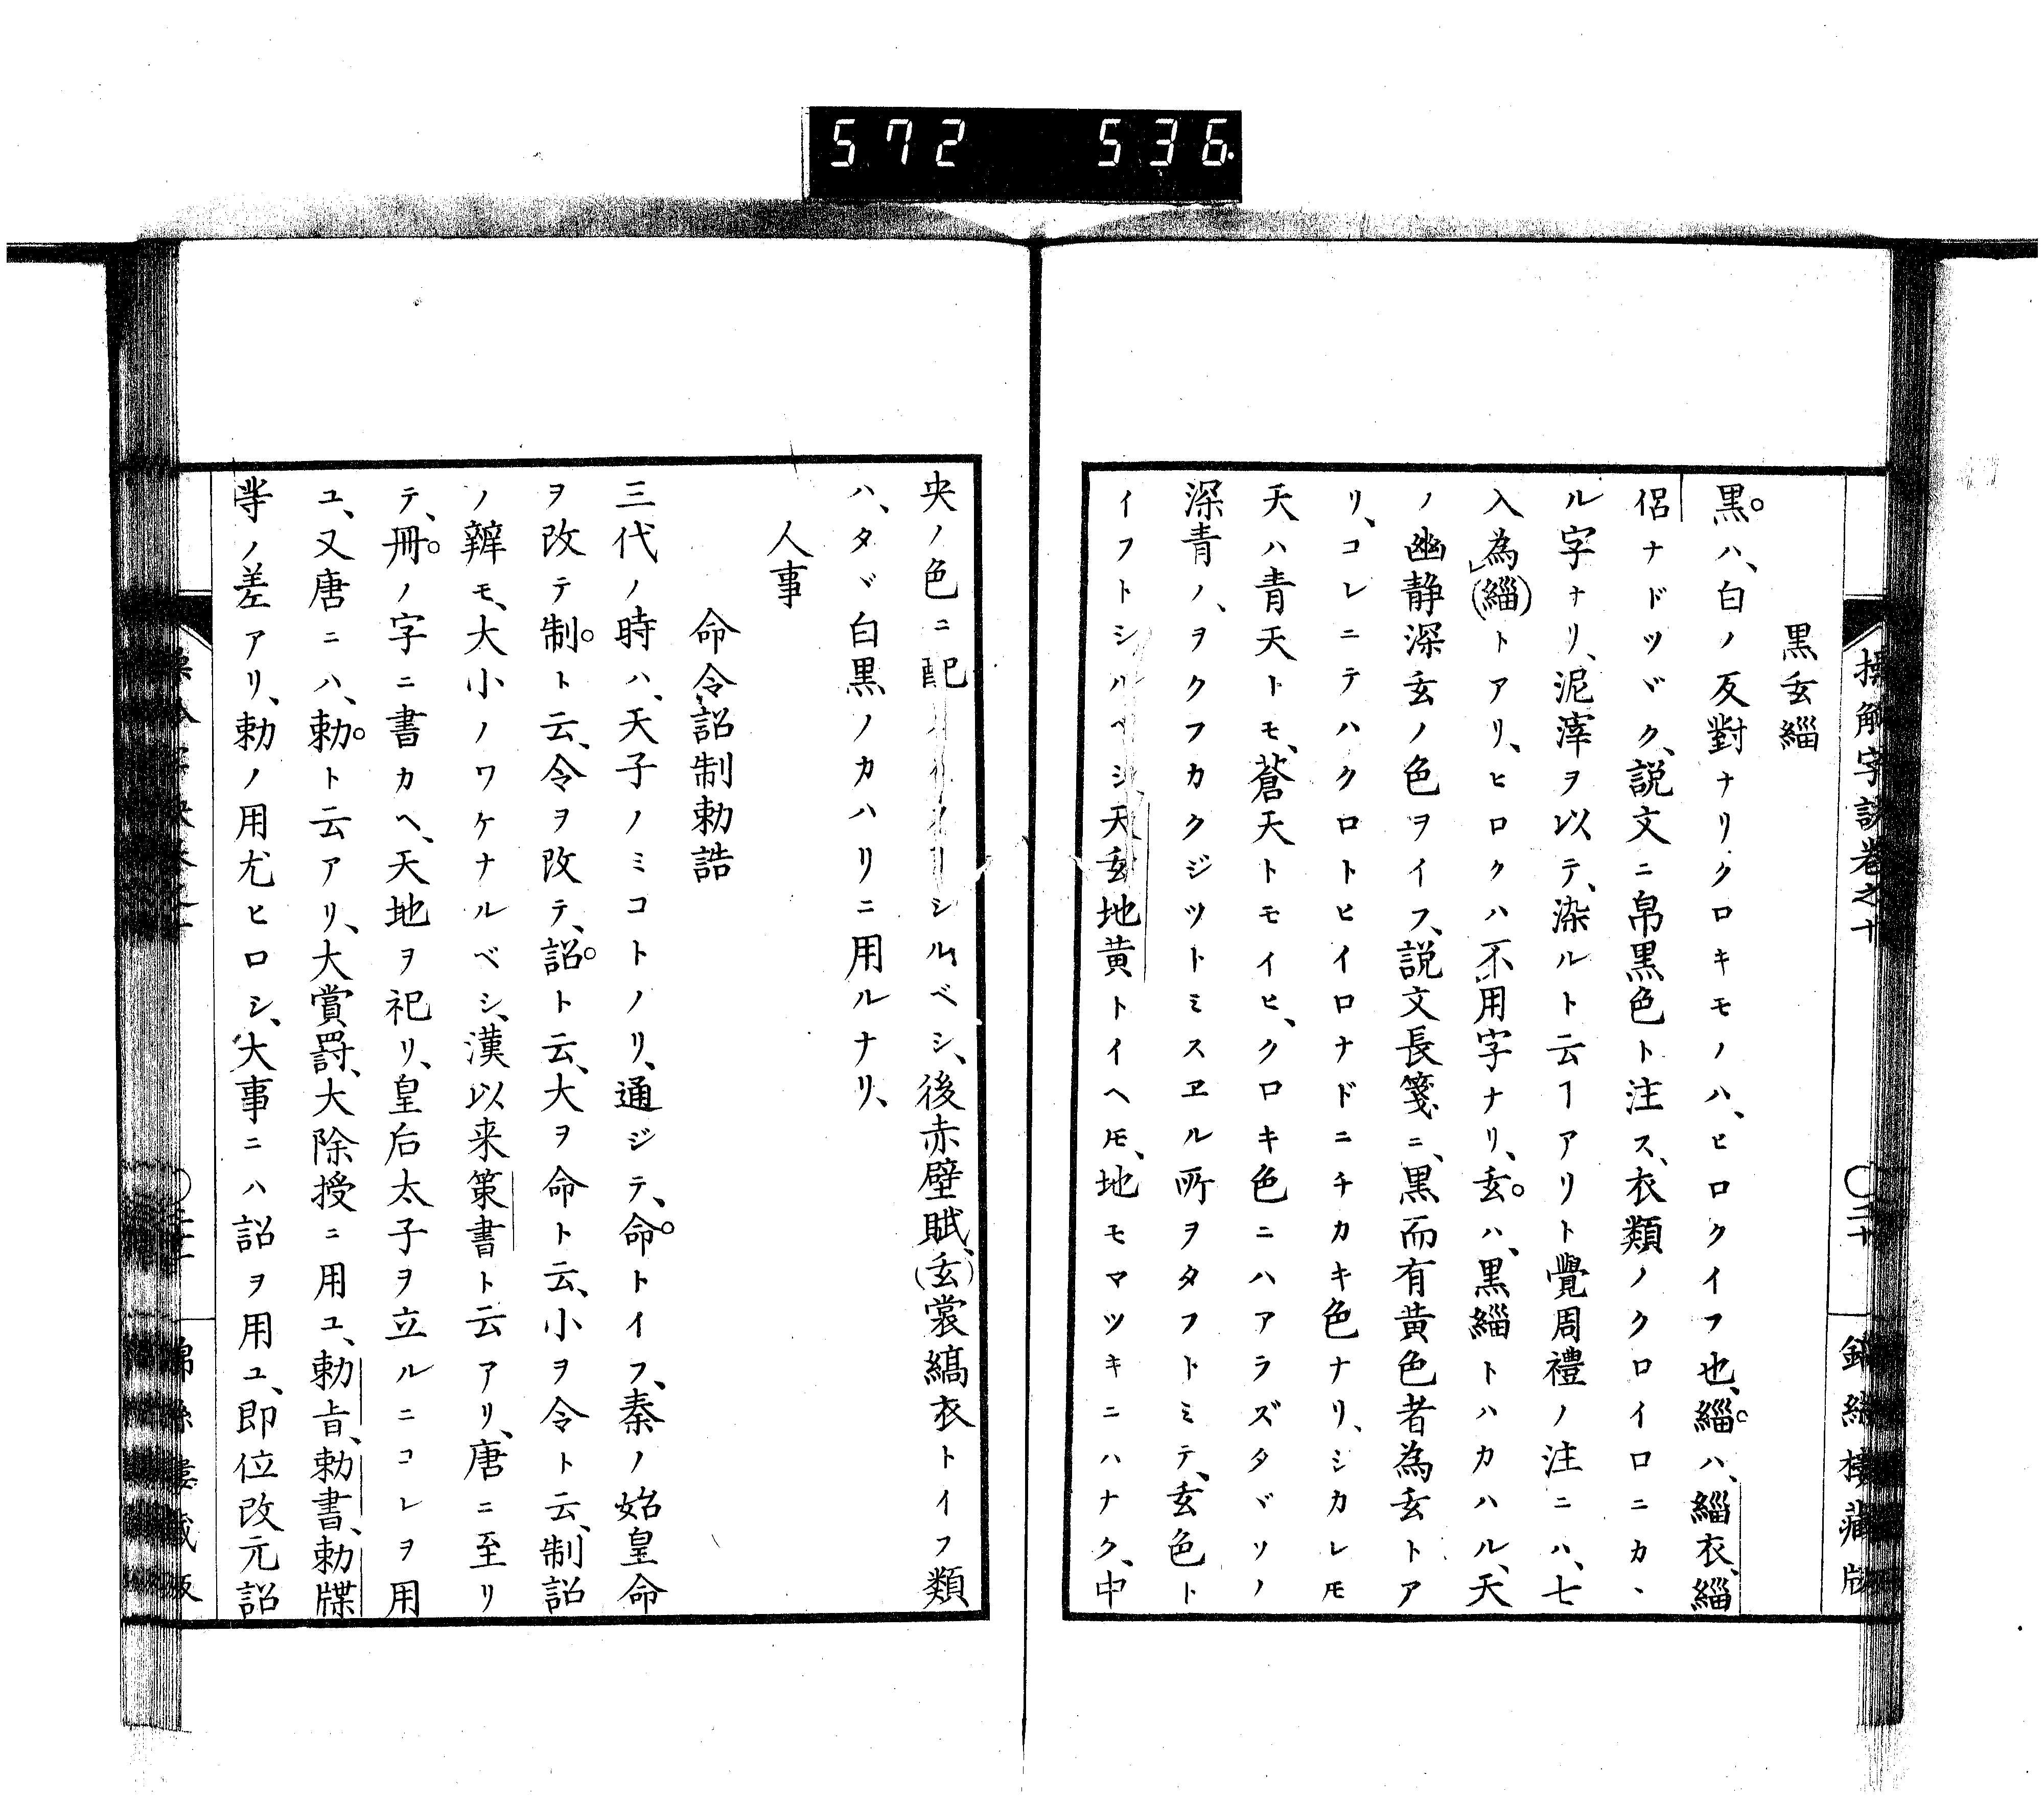 572 536
操觚字訣卷之十 ○二十
黒玄緇
黒。ハ、白ノ反對ナリクロキモノハ、ヒロクイフ也、緇。ハ、緇衣、緇
侶ナドツヾク、説文ニ帛黒色ト注ス、衣類ノクロイロニカヽ
ル字ナリ、泥滓ヲ以テ、染ルト云ヿアリト覺周禮ノ注ニハ、七
入為(緇)トアリ、ヒロクハ不用字ナリ、玄。ハ、黒緇トハカハル、天
ノ幽静深玄ノ色ヲイフ、説文長箋ニ、黒而有黄色者為玄トア
リ、コレニテハクロトヒイロナドニチカキ色ナリ、シカレモ
天ハ青天トモ、蒼天トモイヒ、クロキ色ニハアラズタヾソノ
深青ノ、ヲクフカクジツトミスヱル所ヲタフトミテ、玄色ト
イフトシルベシ、天玄地黄トイヘモ、地モマツキニハナク、中
央ノ色ニ配 シルベシ、後赤壁賦、(玄)裳縞衣トイフ類
ハ、タヾ白黒ノカハリニ用ルナリ、
人事
命令詔制勅誥
三代ノ時ハ、天子ノミコトノリ、通ジテ、命。トイフ、秦ノ始皇命
ヲ改テ制。ト云、令ヲ改テ、詔。ト云、大ヲ命ト云、小ヲ令ト云、制詔
ノ辨モ、大小ノワケナルベシ、漢以来策書ト云アリ、唐ニ至リ
テ、冊。ノ字ニ書カヘ、天地ヲ祀リ、皇后太子ヲ立ルニコレヲ用
ユ、又唐ニハ、勅。ト云アリ、大賞罸、大除授ニ用ユ、勅旨、勅書、勅牒
等ノ差アリ、勅ノ用尤ヒロシ、大事ニハ詔ヲ用ユ、即位改元詔